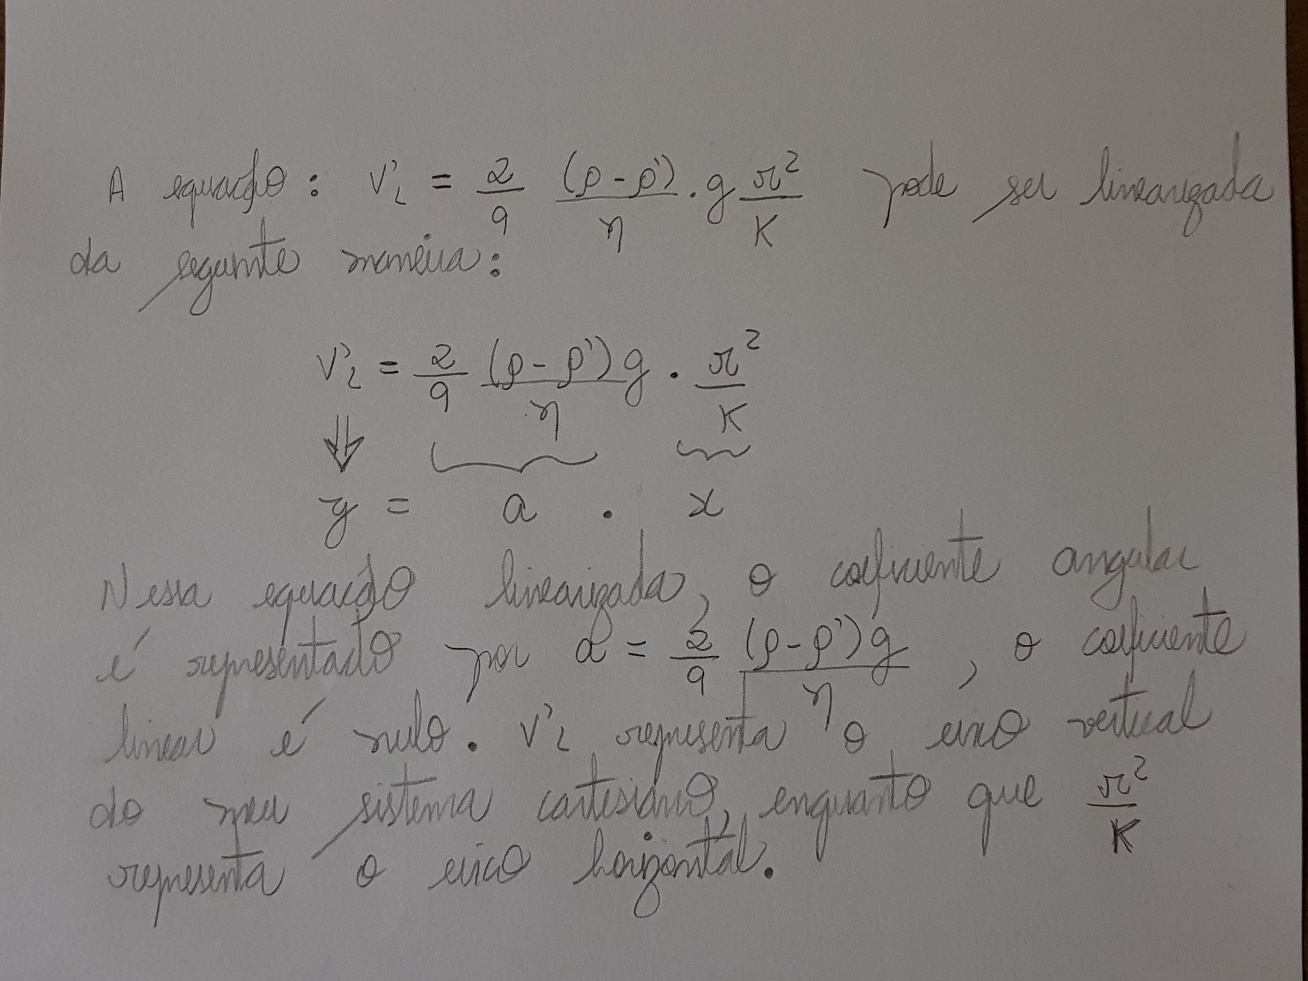 A equação: V'L = 2/9 (ρ-ρ')/η . g r²/K pode ser linearizada
da seguinte maneira:
V'L = 2/9 (ρ-ρ')g/η . r²/K
⇓
y = a . x
Nessa equação linearizada, o coeficiente angular
é representado por a = 2/9 (ρ-ρ')g/η , o coeficiente
linear é nulo. V'L representa o eixo vertical
do meu sistema cartesiano, enquanto que r²/K
representa o eixo horizontal.